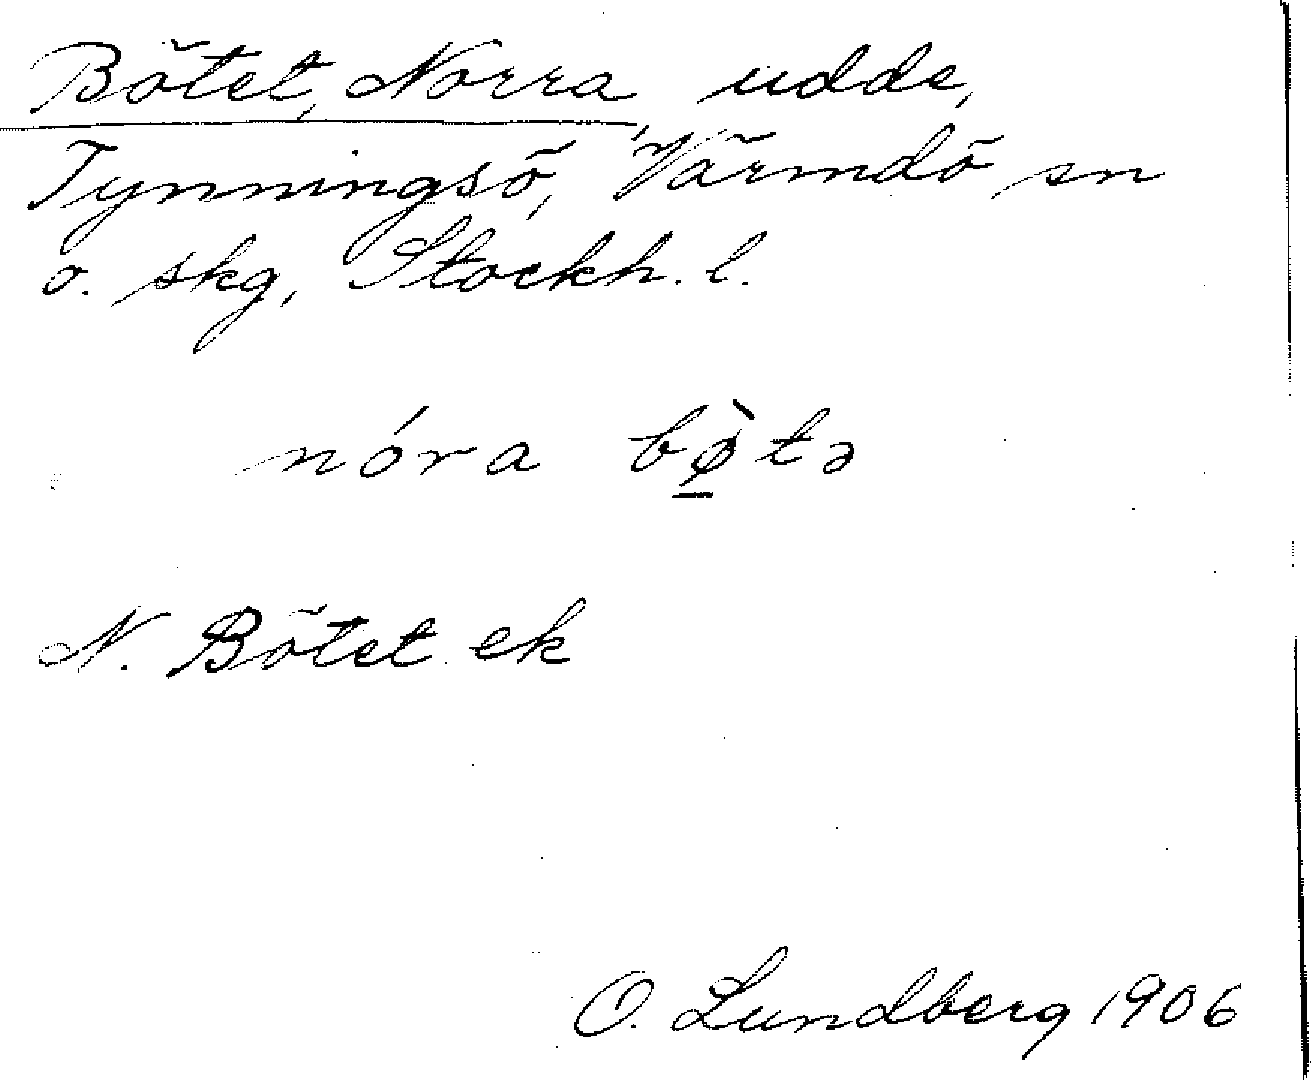 Bötet, Norra, udde,
Tynningsö, Värmdö sn
o. skg, Stockh. l.
nóra bø̠̀tə
N. Bötet ek
O. Lundberg 1906